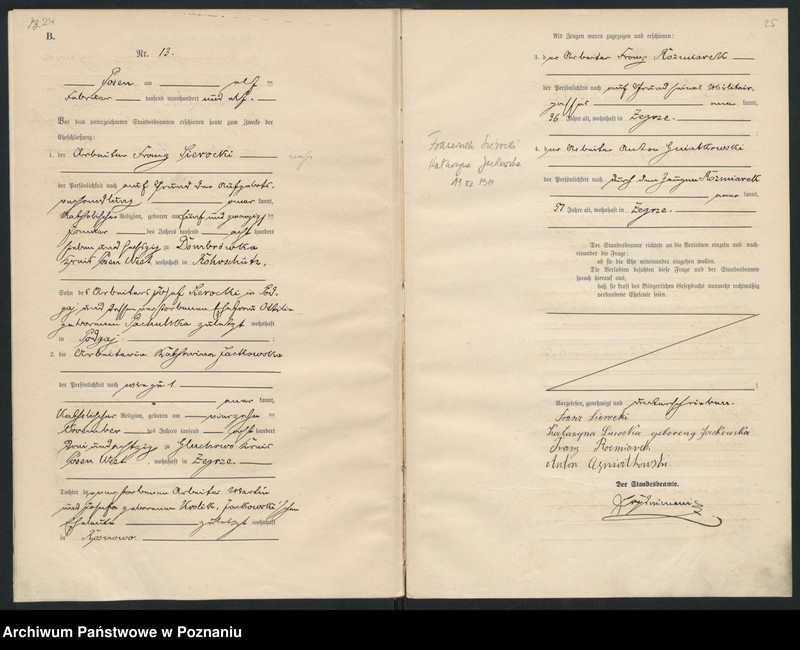 B.
Nr. 13.
Posen, am elf ten
Februar tausend neunhundert und elf.
Vor dem unterzeichneten Standesbeamten erschienen heute zum Zwecke der
Eheschließung:
1. der Arbeiter Franz Sierocki
der Persönlichkeit nach auf Grund des Aufgebots-
verhandlung aner kannt,
katholischer Religion, geboren am fünf und zwanzigsten
Januar des Jahres tausend acht hundert
sieben und achtzig zu Dombrówka
Kreis Posen West, wohnhaft in
Sohn des Arbeiters Josef Sierocki in Pod-
gaj und dessen verstorbenen Ehefrau Ottilie
geborenen zuletzt wohnhaft
in Podgaj
2. die Arbeiterin Katharina Jackowska
der Persönlichkeit nach wie zu 1
aner kannt,
katholischer Religion, geboren am ten
November des Jahres tausend acht hundert
drei und achtzig zu Gluchowo Kreis
Posen West, wohnhaft in Żegrze.
Tochter der verstorbenen Arbeiter Martin
und Josefa geborenen Krolik, Jackowski'schen
Eheleute zuletzt wohnhaft
in Rosnowo.
25
Als Zeugen waren zugezogen und erschienen:
3. der Arbeiter Franz Rozmiarek
der Persönlichkeit nach auf Grund seines Militär-
passes aner kannt,
36 Jahre alt, wohnhaft in Żegrze.
4. der Arbeiter Anton Gniatkowski
der Persönlichkeit nach durch den Zeugen Rozmiarek
aner kannt,
51 Jahre alt, wohnhaft in Żegrze.
Franciszek Sierocki
Katarzyna Jackowska
11 02 1911
Der Standesbeamte richtete an die Verlobten einzeln und nach-
einander die Frage:
ob sie die Ehe miteinander eingehen wollen.
Die Verlobten bejahten diese Frage und der Standesbeamte
sprach hierauf aus,
daß sie kraft des Bürgerlichen Gesetzbuchs nunmehr rechtmäßig
verbundene Eheleute seien.
Vorgelesen, genehmigt und unterschrieben.
Franz Sierocki
Katarzyna Sierocka geborene Jackowska
Franz Rozmiarek
Anton Gniatkowski
Der Standesbeamte.
Archiwum Państwowe w Poznaniu